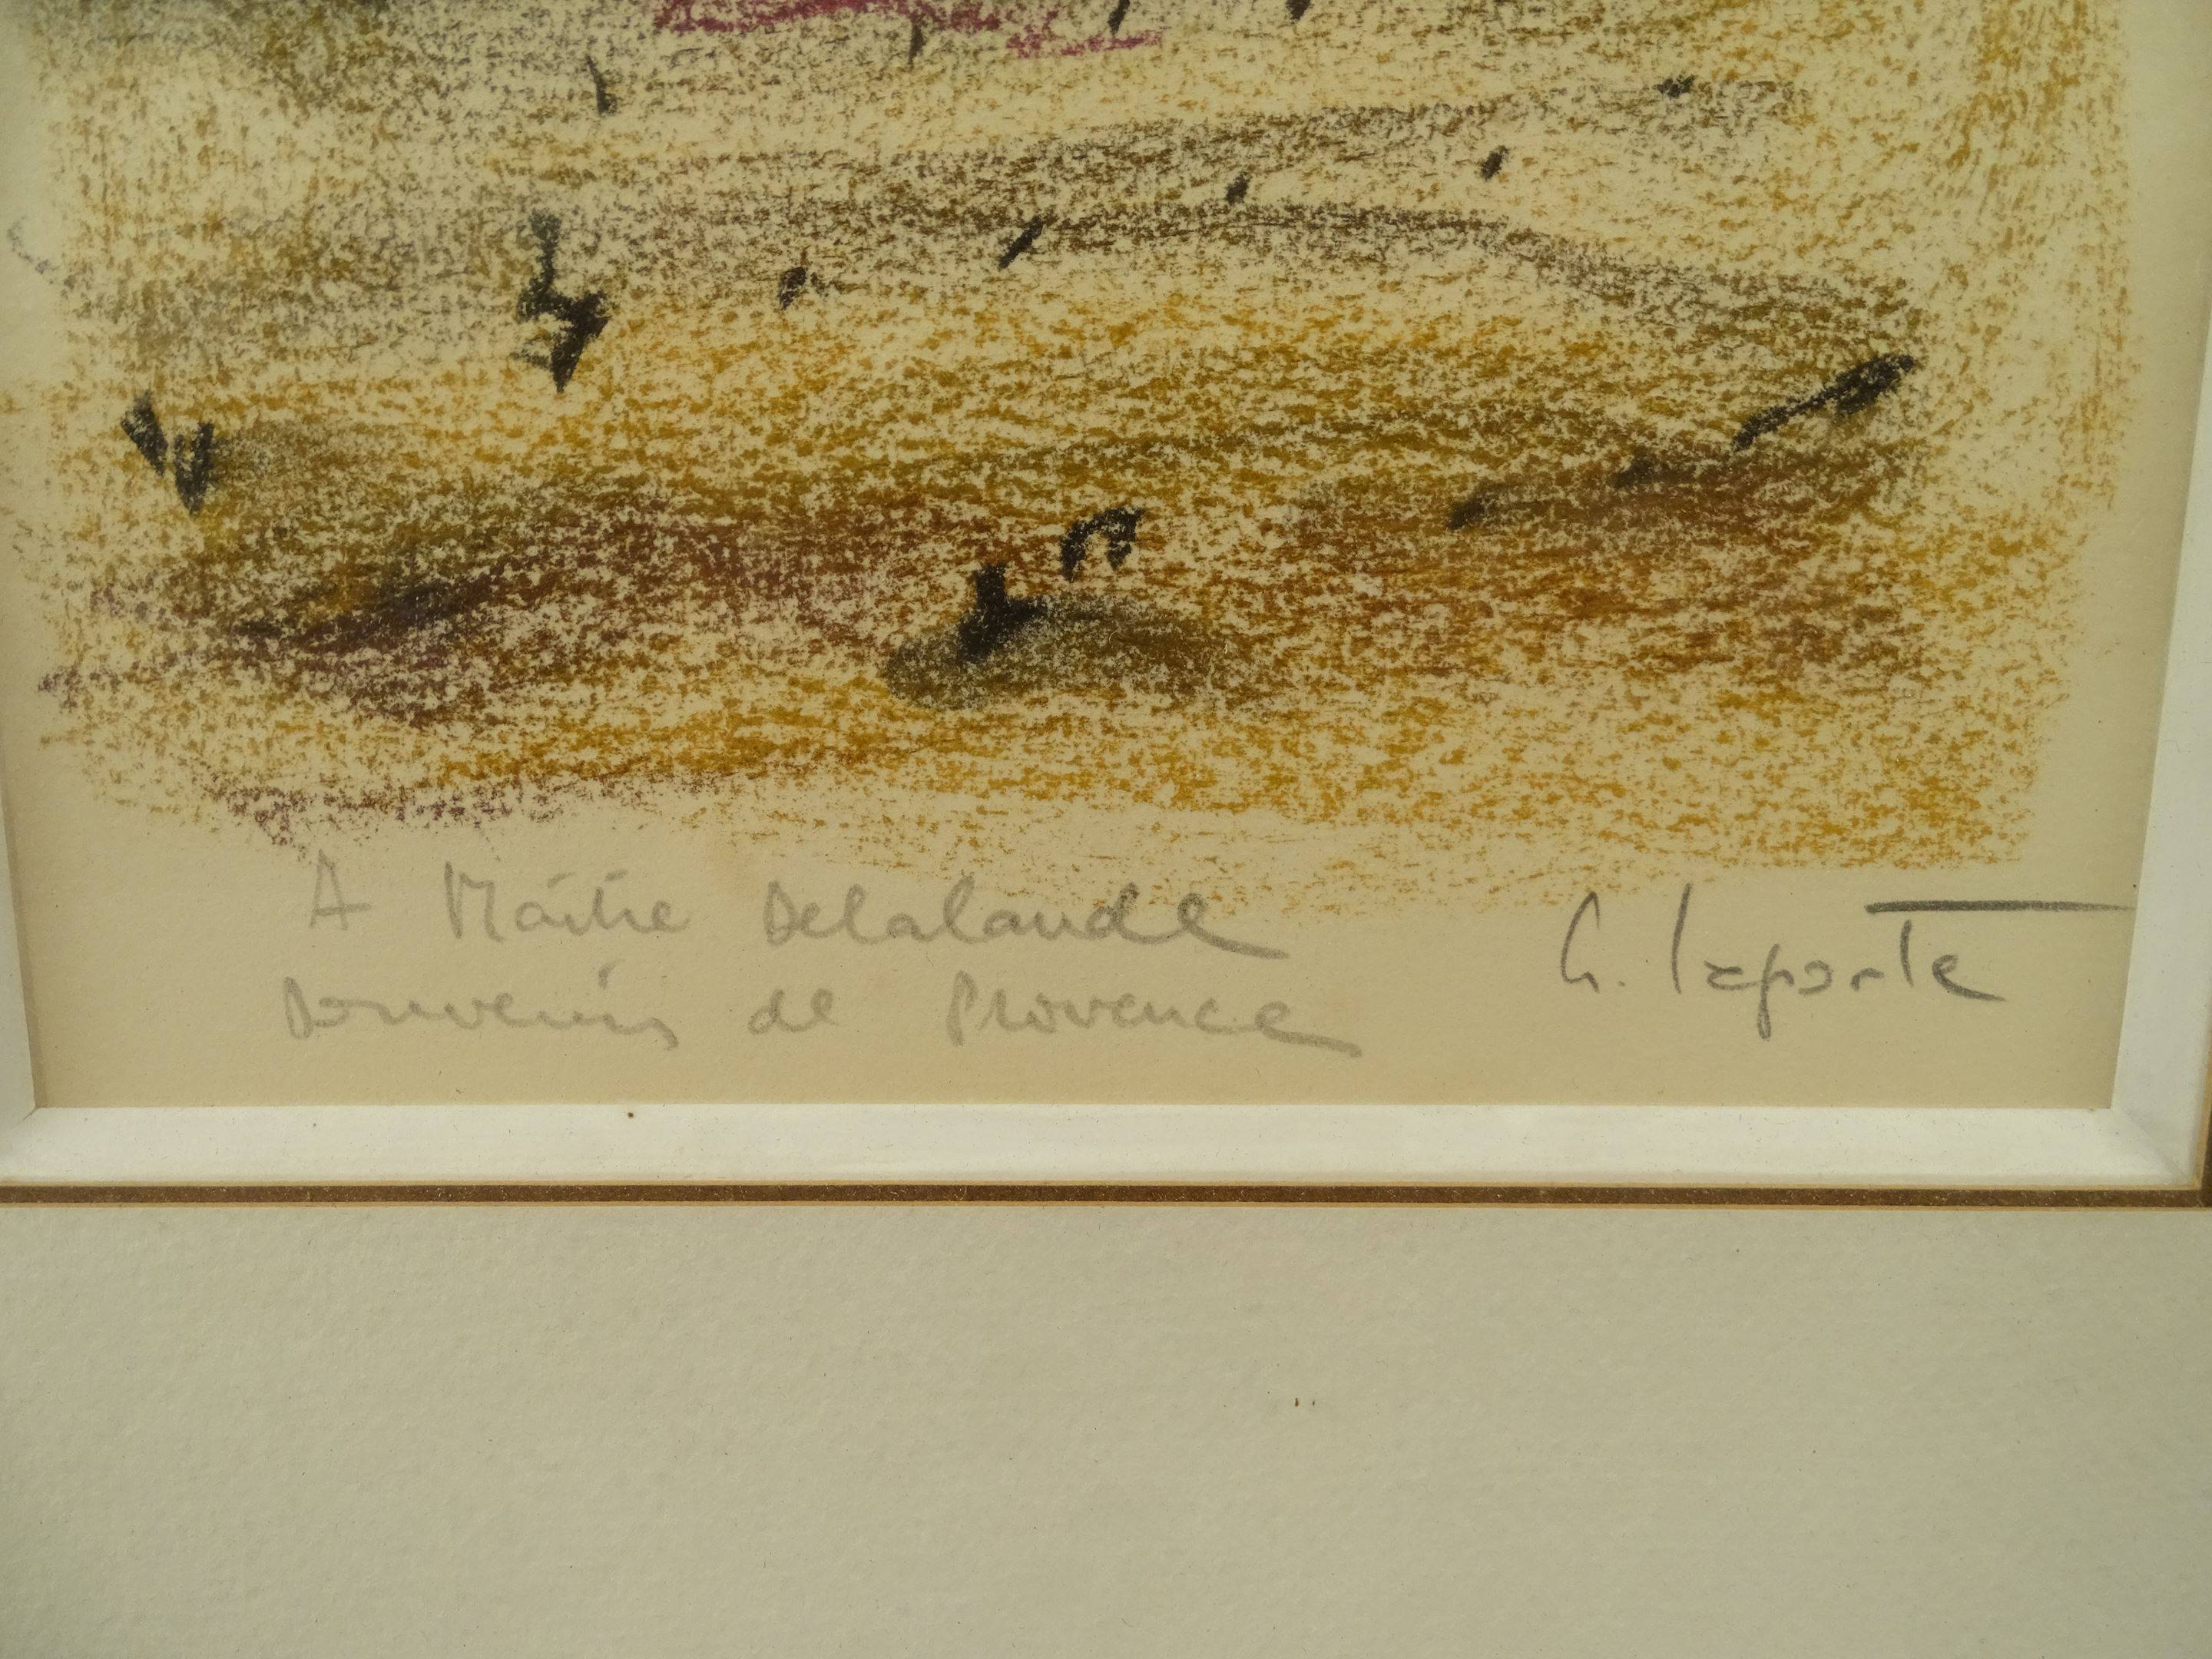 A Maître Delalande
Souvenirs de Provence
G. Laporte